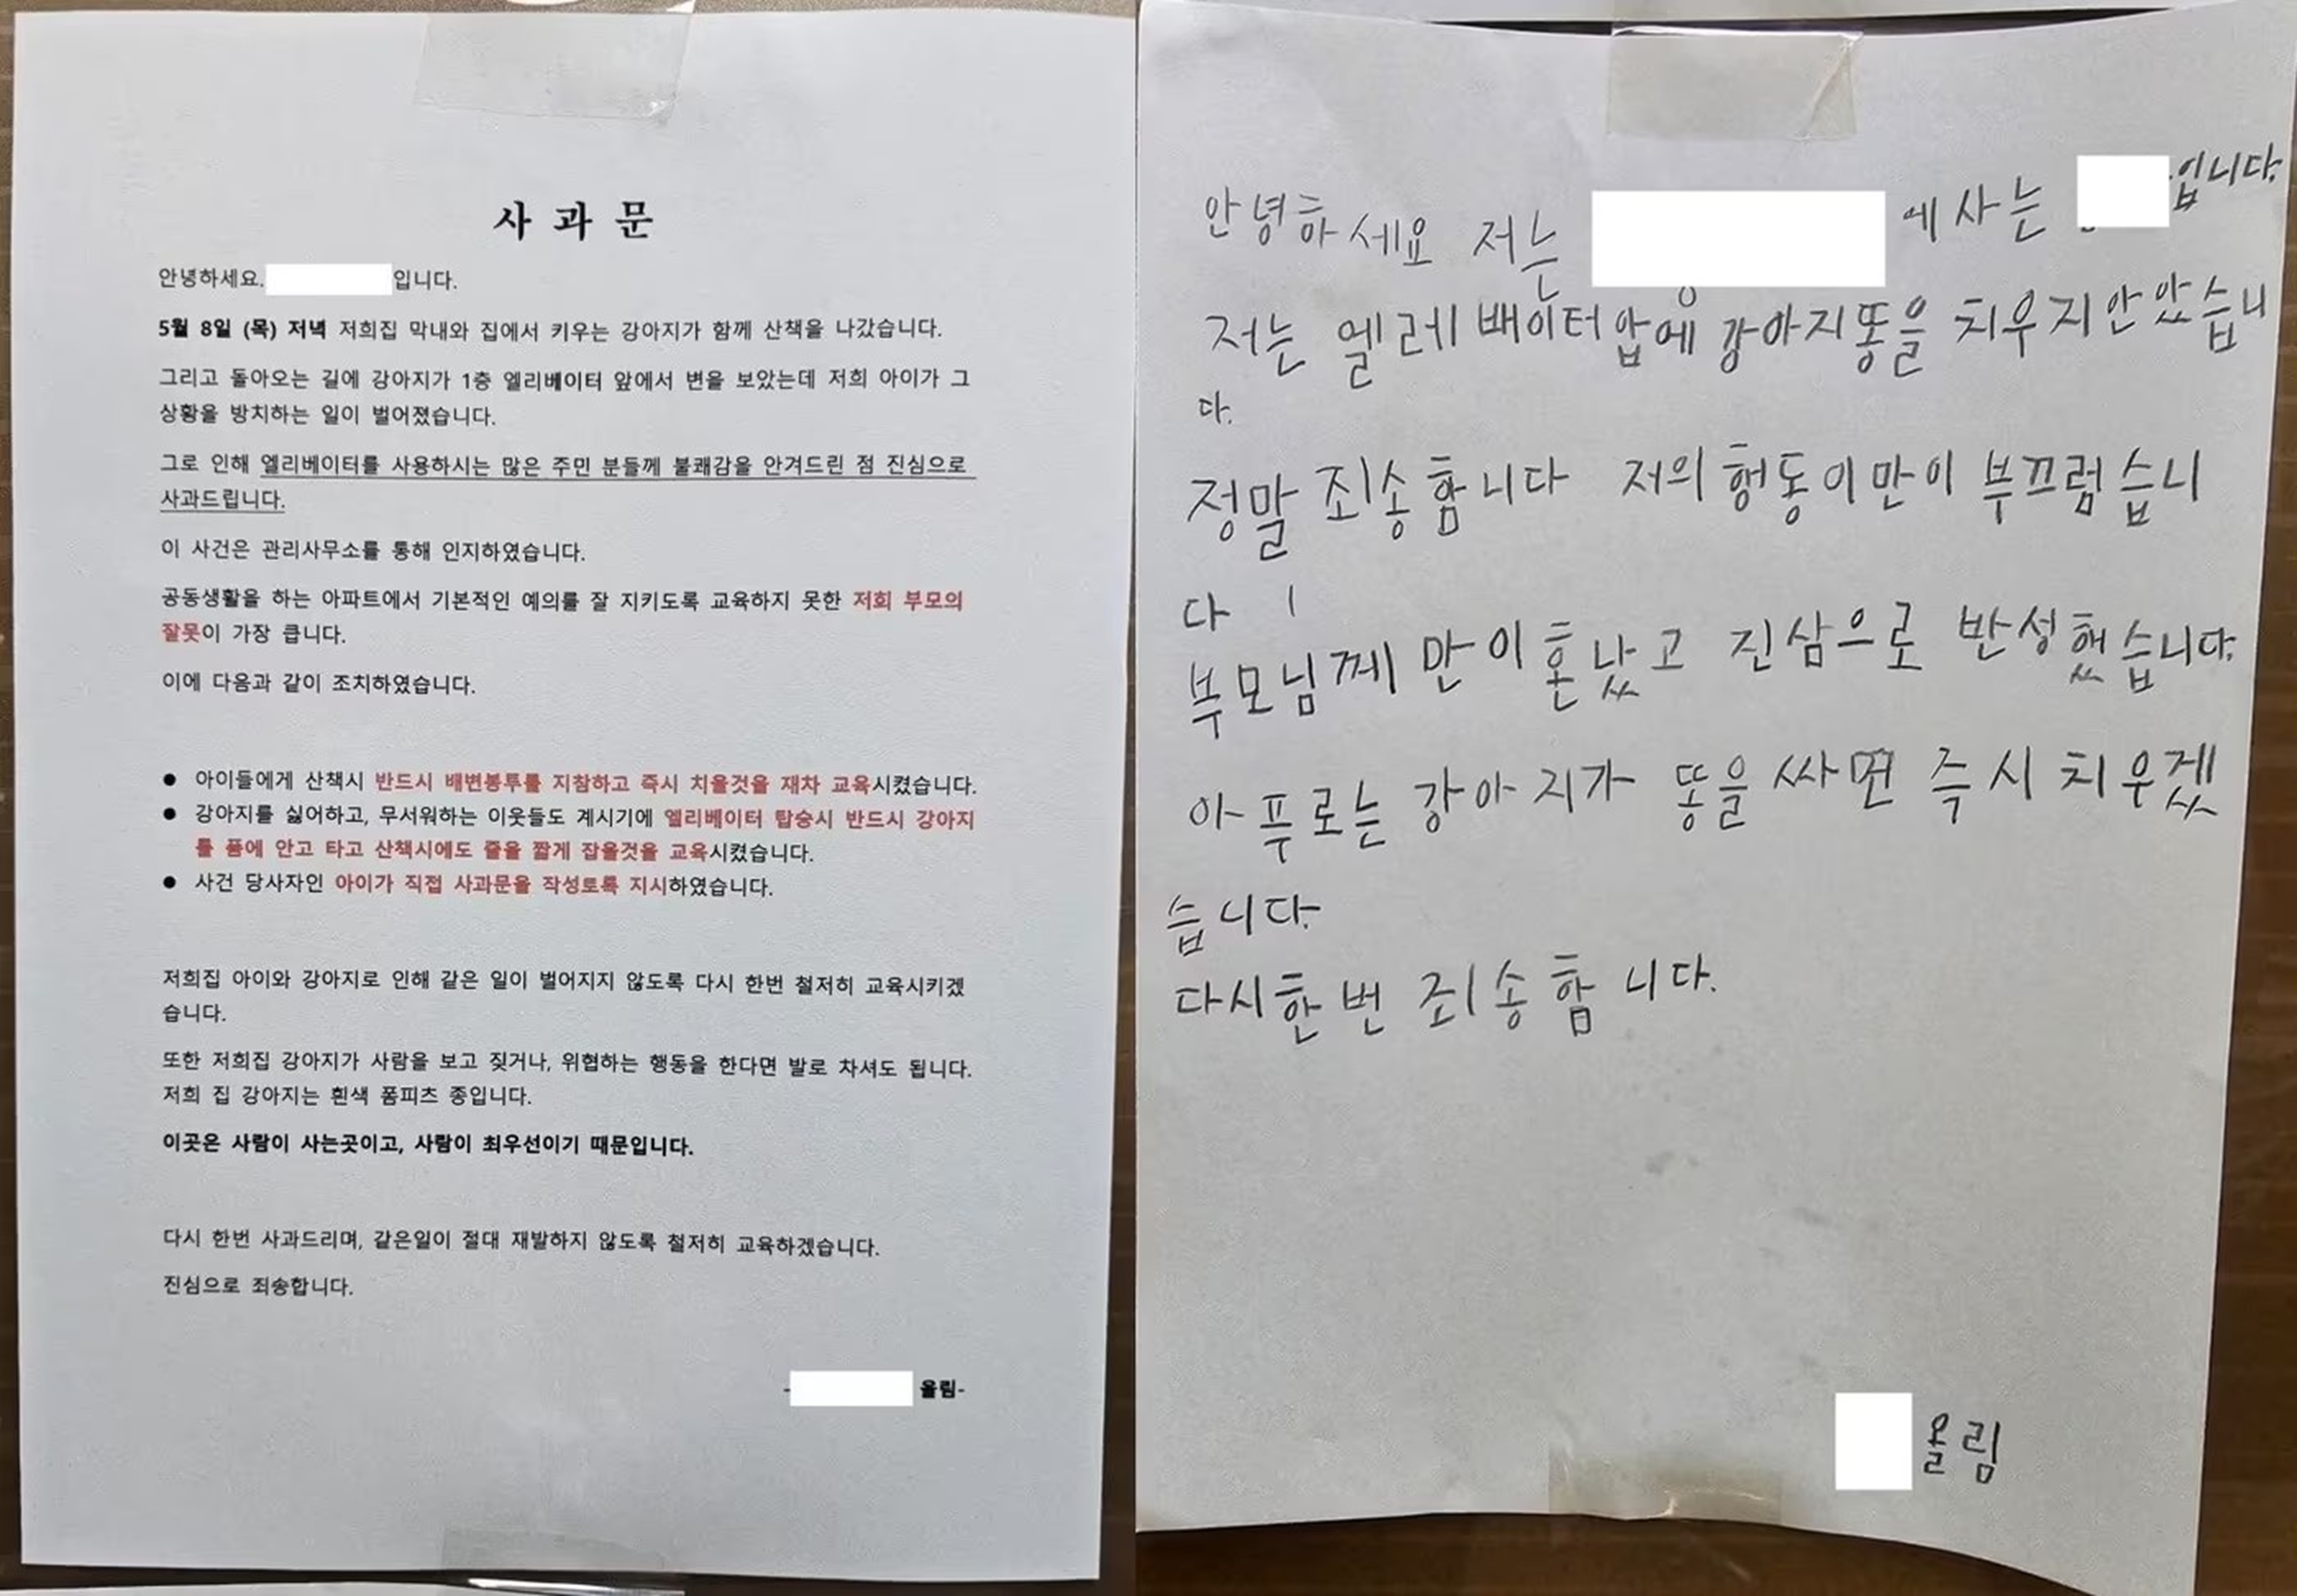 사 과 문
안녕하세요. 입니다.
5월 8일 (목) 저녁 저희집 막내와 집에서 키우는 강아지가 함께 산책을 나갔습니다.
그리고 돌아오는 길에 강아지가 1층 엘리베이터 앞에서 변을 보았는데 저희 아이가 그
상황을 방치하는 일이 벌어졌습니다.
그로 인해 엘리베이터를 사용하시는 많은 주민 분들께 불쾌감을 안겨드린 점 진심으로
사과드립니다.
이 사건은 관리사무소를 통해 인지하였습니다.
공동생활을 하는 아파트에서 기본적인 예의를 잘 지키도록 교육하지 못한 저희 부모의
잘못이 가장 큽니다.
이에 다음과 같이 조치하였습니다.
● 아이들에게 산책시 반드시 배변봉투를 지참하고 즉시 치울것을 재차 교육시켰습니다.
● 강아지를 싫어하고, 무서워하는 이웃들도 계시기에 엘리베이터 탑승시 반드시 강아지
를 품에 안고 타고 산책시에도 줄을 짧게 잡을것을 교육시켰습니다.
● 사건 당사자인 아이가 직접 사과문을 작성토록 지시하였습니다.
저희집 아이와 강아지로 인해 같은 일이 벌어지지 않도록 다시 한번 철저히 교육시키겠
습니다.
또한 저희집 강아지가 사람을 보고 짖거나, 위협하는 행동을 한다면 발로 차셔도 됩니다.
저희 집 강아지는 흰색 폼피츠 종입니다.
이곳은 사람이 사는곳이고, 사람이 최우선이기 때문입니다.
다시 한번 사과드리며, 같은일이 절대 재발하지 않도록 철저히 교육하겠습니다.
진심으로 죄송합니다.
- 올림-
안녕하세요 저는 에사는 입니다.
저는 엘레배이터앞에 강아지똥을 치우지안았습니
다.
정말 죄송함니다 저의행동이만이 부끄럽습니
다
부모님께 만이혼났고 진삼으로 반성했습니다.
아푸로는 강아지가 똥을 싸면 즉시 치우겠
습니다.
다시한번 죄송함니다.
올림